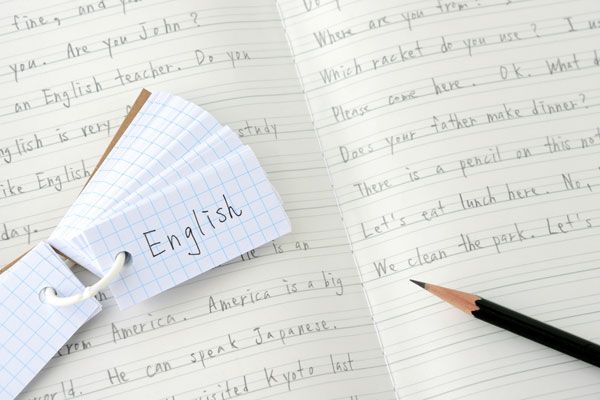 fine, and you?
you. Are you John?
an English teacher. Do you
English is very
study
like English
day.
He is an
from America. America is a big
world. He can speak Japanese.
visited Kyoto last
English
Where are you from?
Which racket do you use? I us
Please come here. Ok. What d
Does your father make dinner?
There is a pencil on this not
Let's eat lunch here. No,
We clean the park. Let's